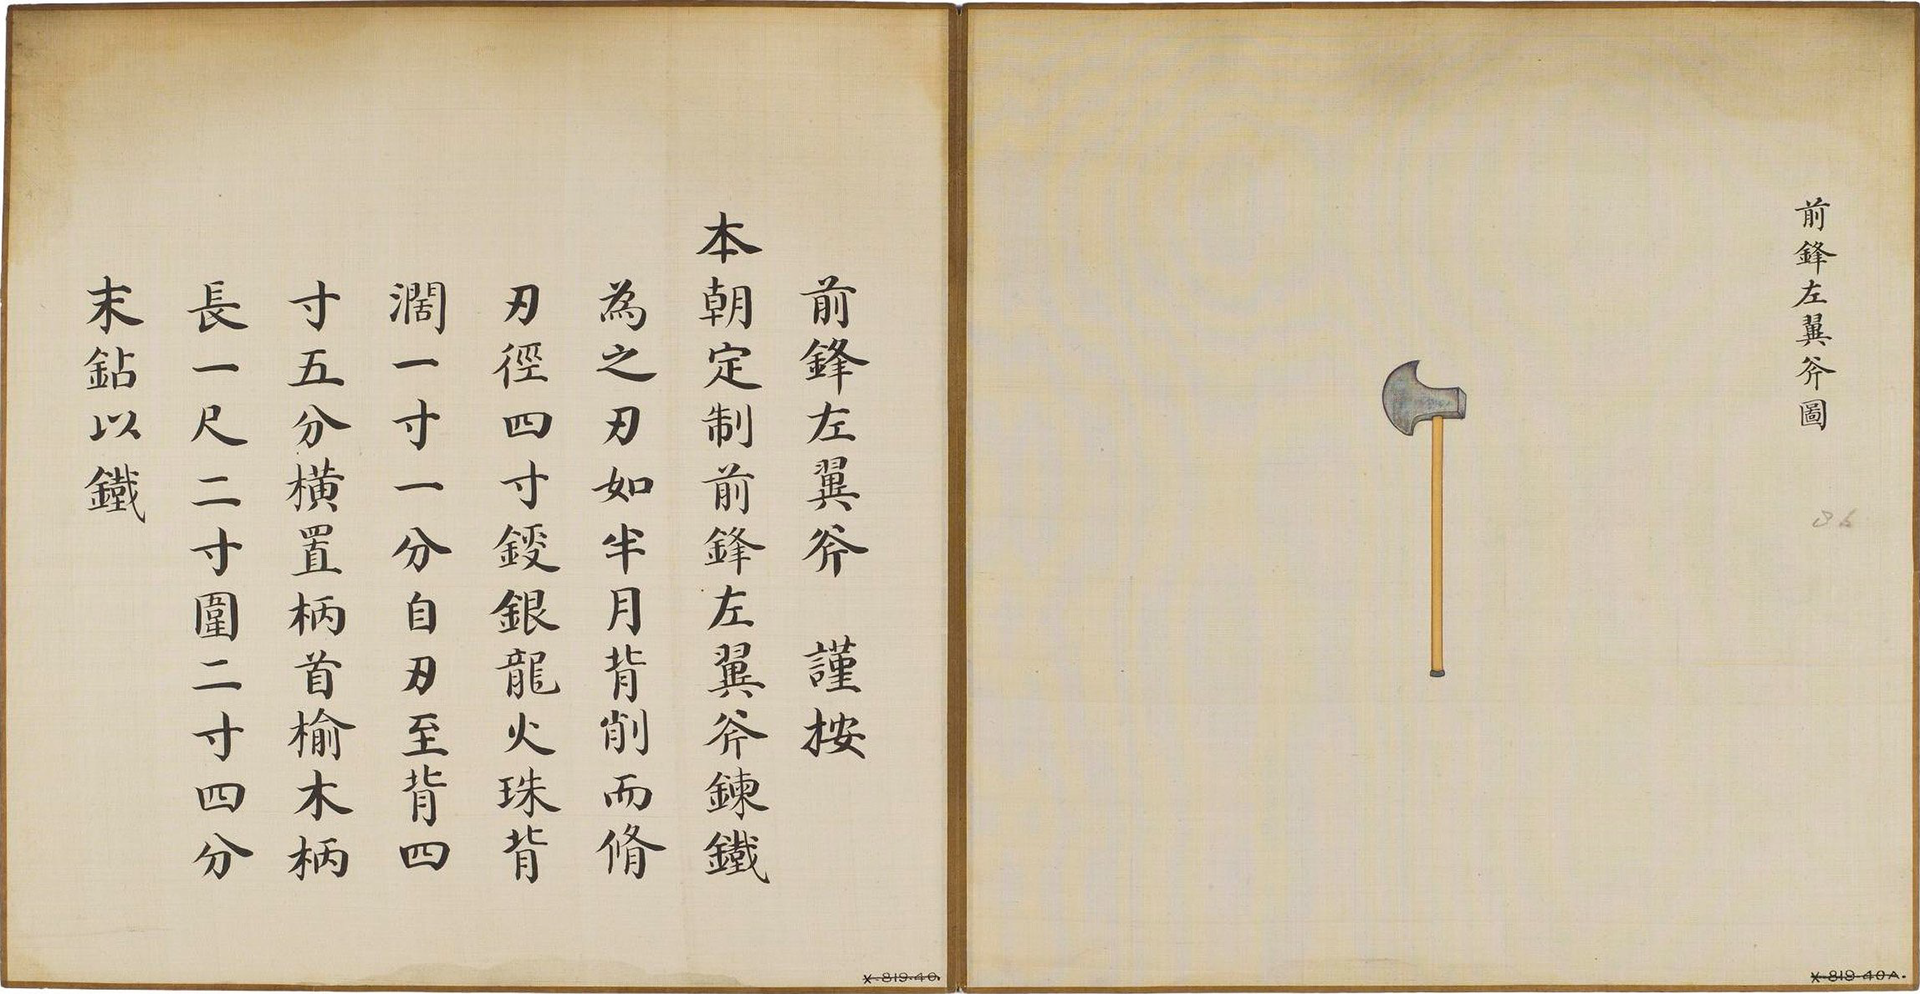 前鋒左翼斧圖
86
前鋒左翼斧　謹按
本朝定制前鋒左翼斧鍊鐵
為之刃如半月背削而脩
刃徑四寸鋄銀龍火珠背
濶一寸一分自刃至背四
寸五分橫置柄首榆木柄
長一尺二寸圍二寸四分
末鉆以鐵
X-819-40.
X-819-40A.